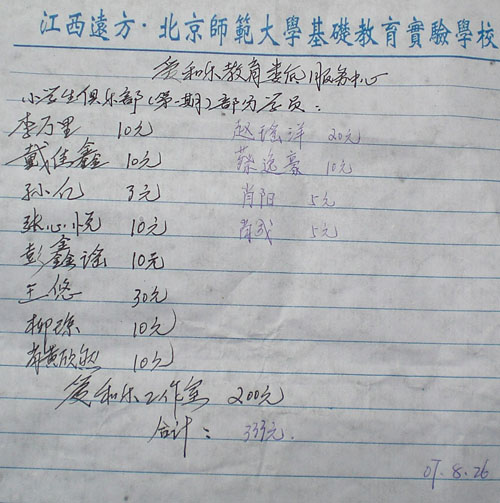 江西遠方·北京師範大學基礎教育實驗學校
爱和乐教育委优服务中心
小学生俱乐部（第一期）部分学员：
李万里 10元 赵瑶洋 20元
戴佳鑫 10元 蔡逸豪 10元
孙亿 3元 肖阳 5元
张心悦 10元 肖成 5元
彭鑫谣 10元
王悠 30元
柳琼 10元
黄欣 10元
爱和乐工作室 200元
合计： 333元.
07.8.26